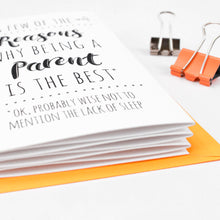 A FEW OF THE
Reasons
WHY BEING A
parent
IS THE BEST*
*OK, PROBABLY WISE NOT TO
MENTION THE LACK OF SLEEP